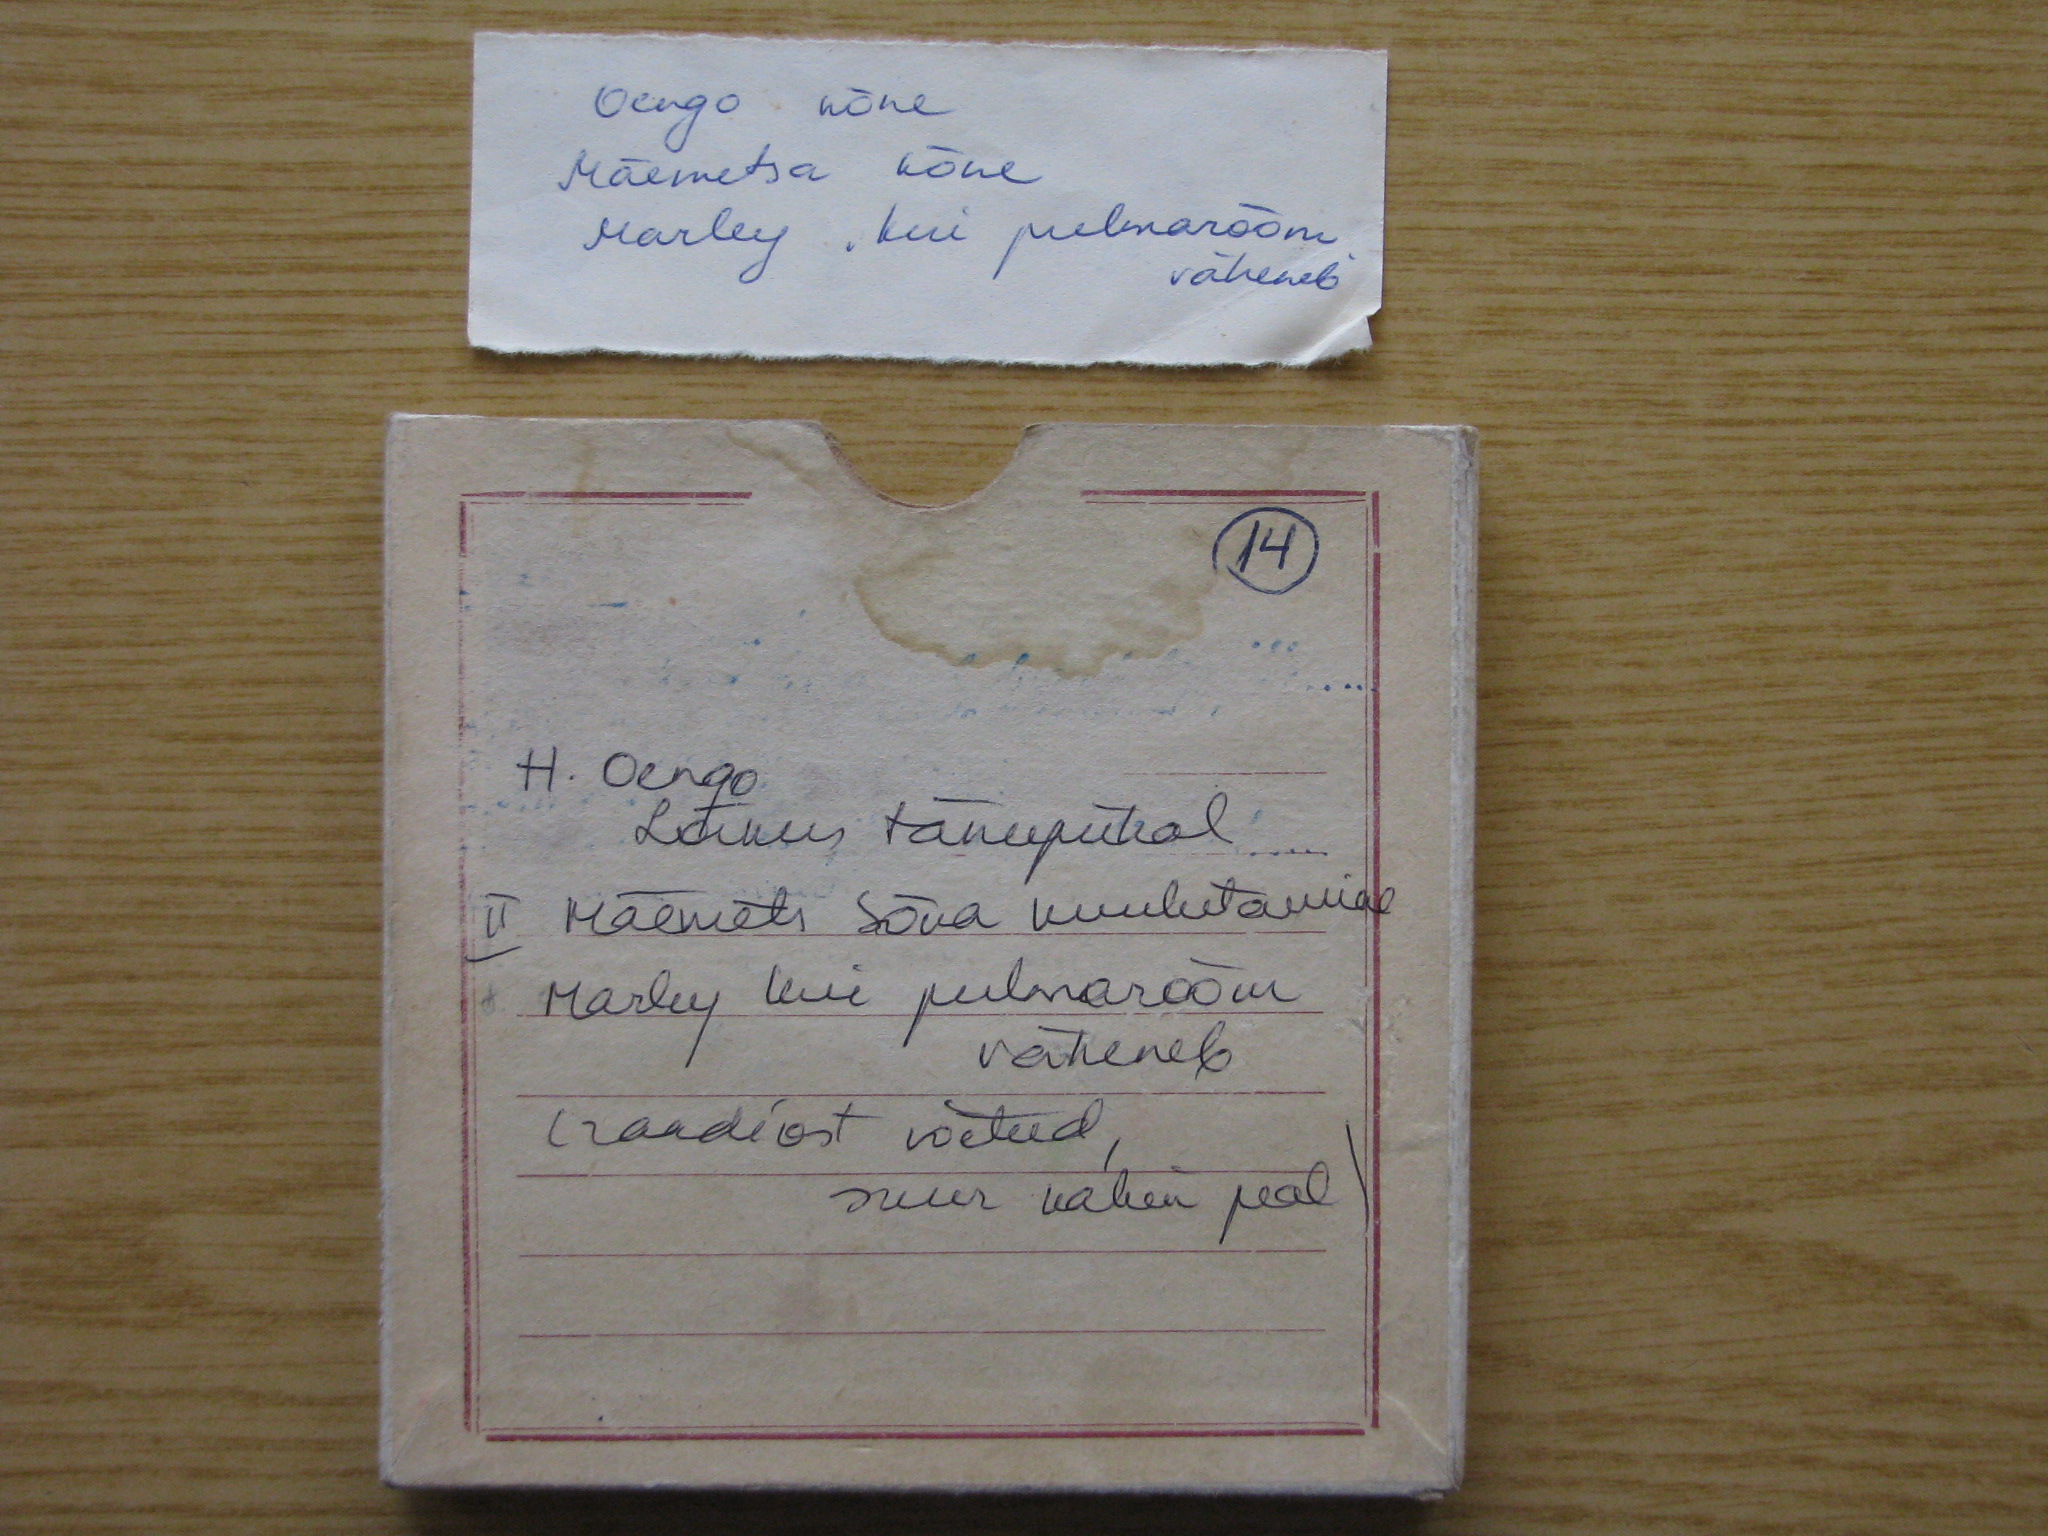 Oengo kõne
Mäemetsa kõne
Marley, kui pulmarõõm
väheneb
14
H. Oengo
Lõikus tänupühal
II Mäemets Sõna kuulutamine
Marley kui pulmarõõm
väheneb
(raadiost võetud,
suur kahin peal)